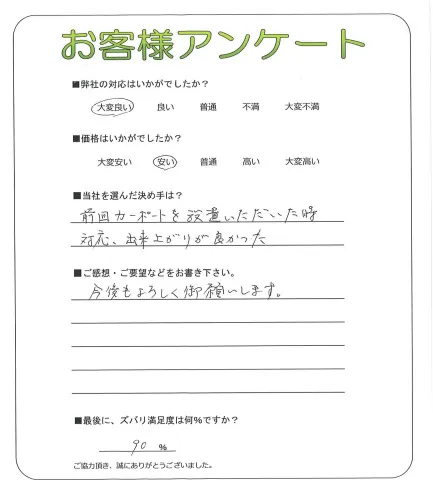 お客様アンケート
■弊社の対応はいかがでしたか？
大変良い 良い 普通 不満 大変不満
■価格はいかがでしたか？
大変安い 安い 普通 高い 大変高い
■当社を選んだ決め手は？
前回カーポートを設置いただいた時
対応、出来上がりが良かった
■ご感想・ご要望などをお書き下さい。
今後もよろしく御願いします。
■最後に、ズバリ満足度は何％ですか？
90 ％
ご協力頂き、誠にありがとうございました。